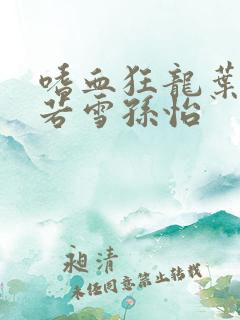 嗜血狂龍葉
若雪孫怡
昶清
未任同意禁止转载